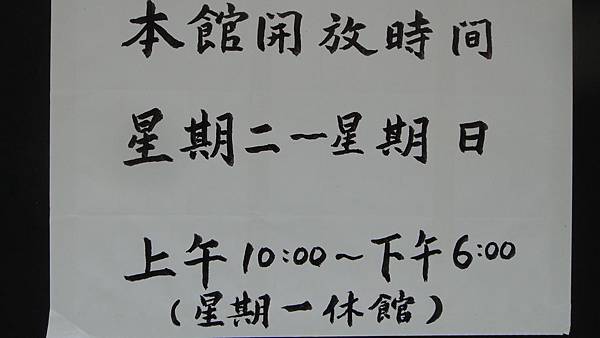 本館開放時間
星期二～星期日
上午10:00～下午6:00
(星期一休館)